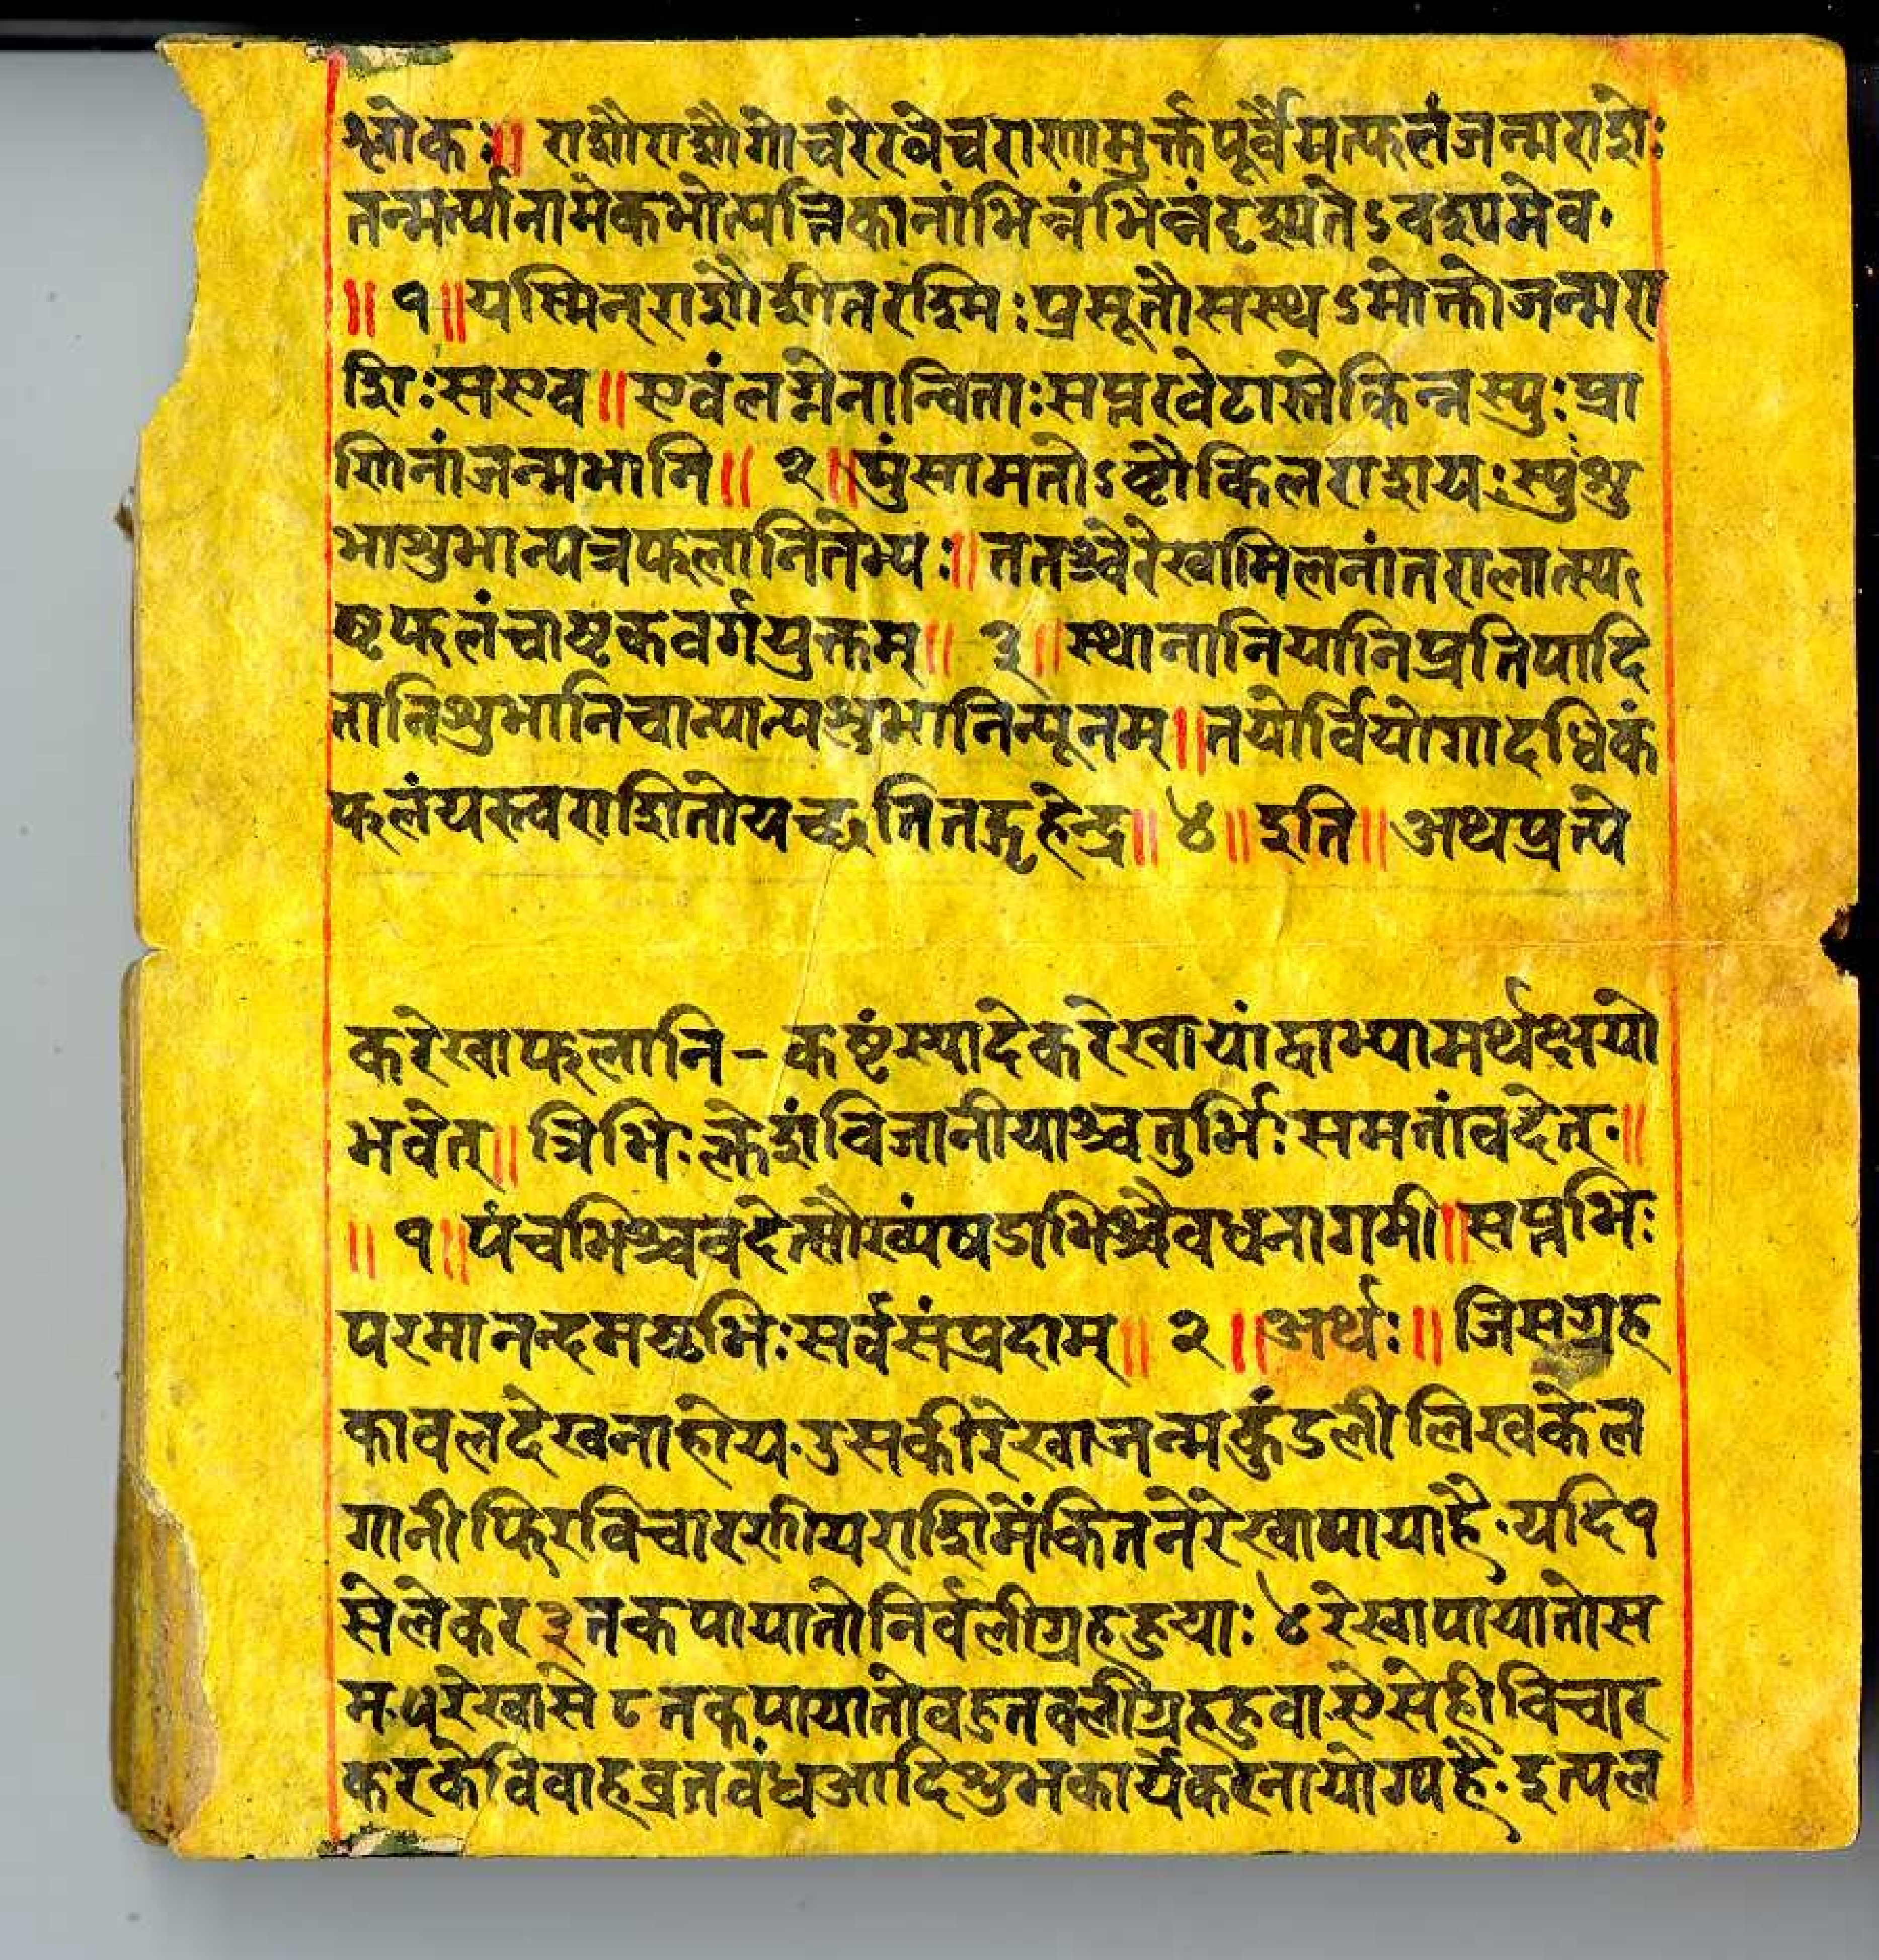 श्लोकः॥ राशौराशौगोचरेखेचराणामुक्तंपूर्वैमत्फलंजन्मराशेः
तन्मर्त्यानामेकभोत्पन्निकानांभिन्नंभिन्नंदृश्यतेऽवश्यमेव॰
॥ १॥यस्मिन्राशौशीतरश्मिःप्रसूतौसस्थऽमोक्तोजन्मरा
शिःसएव॥एवंलग्नेनान्विताःसप्तखेटास्तेकिन्नस्युःप्रा
णिनांजन्मभानि॥ २॥पुंसामतोऽष्टौकिलराशयःस्पुंशु
भाशुभान्यत्रफलानितेभ्यः॥ततश्चरेखामिलनांतरालात्स्प
ष्टफलंचाष्टकवर्गयुक्तम्॥ ३॥स्थानानियानिप्रतिपादि
तानिशुभानिचान्यान्यशुभानिन्यूनम्॥तयोर्वियोगादधिकं
फलंयस्वराशितोयच्छतितद्गृहेन्द्र॥ ४॥इति॥ अथप्रत्ये
करेखाफलानि-कष्टंस्यादेकरेखायांद्वाभ्यामर्थक्षयो
भवेत्॥त्रिभिःक्लेशंविजानीयाश्चतुर्भिःसमतांवदेत्॰॥
॥ १॥पंचभिश्चवदेत्सौख्यंषडाभिश्चैवधनागमी॥सप्तभिः
परमानन्दमष्टभिःसर्वसंप्रदाम्॥ २॥अर्थः॥ जिसग्रह
कावलदेखनाहोय॰उसकीरेखाजन्मकुंडलीलिखकेल
गानीफिरविचारणीयराशिमेंकितनेरेखापायाहै॰यदि१
सेलेकर३तकपायातोनिर्वलीग्रहहुयाः४रेखापायातोस
म॰५रेखासे८तकपायातोवहुतवलीग्रहहुवा॰ऐसेहीविचार
करकेविवाहव्रतवंधआदिशुभकार्यकरनायोग्यहै॰इत्यल